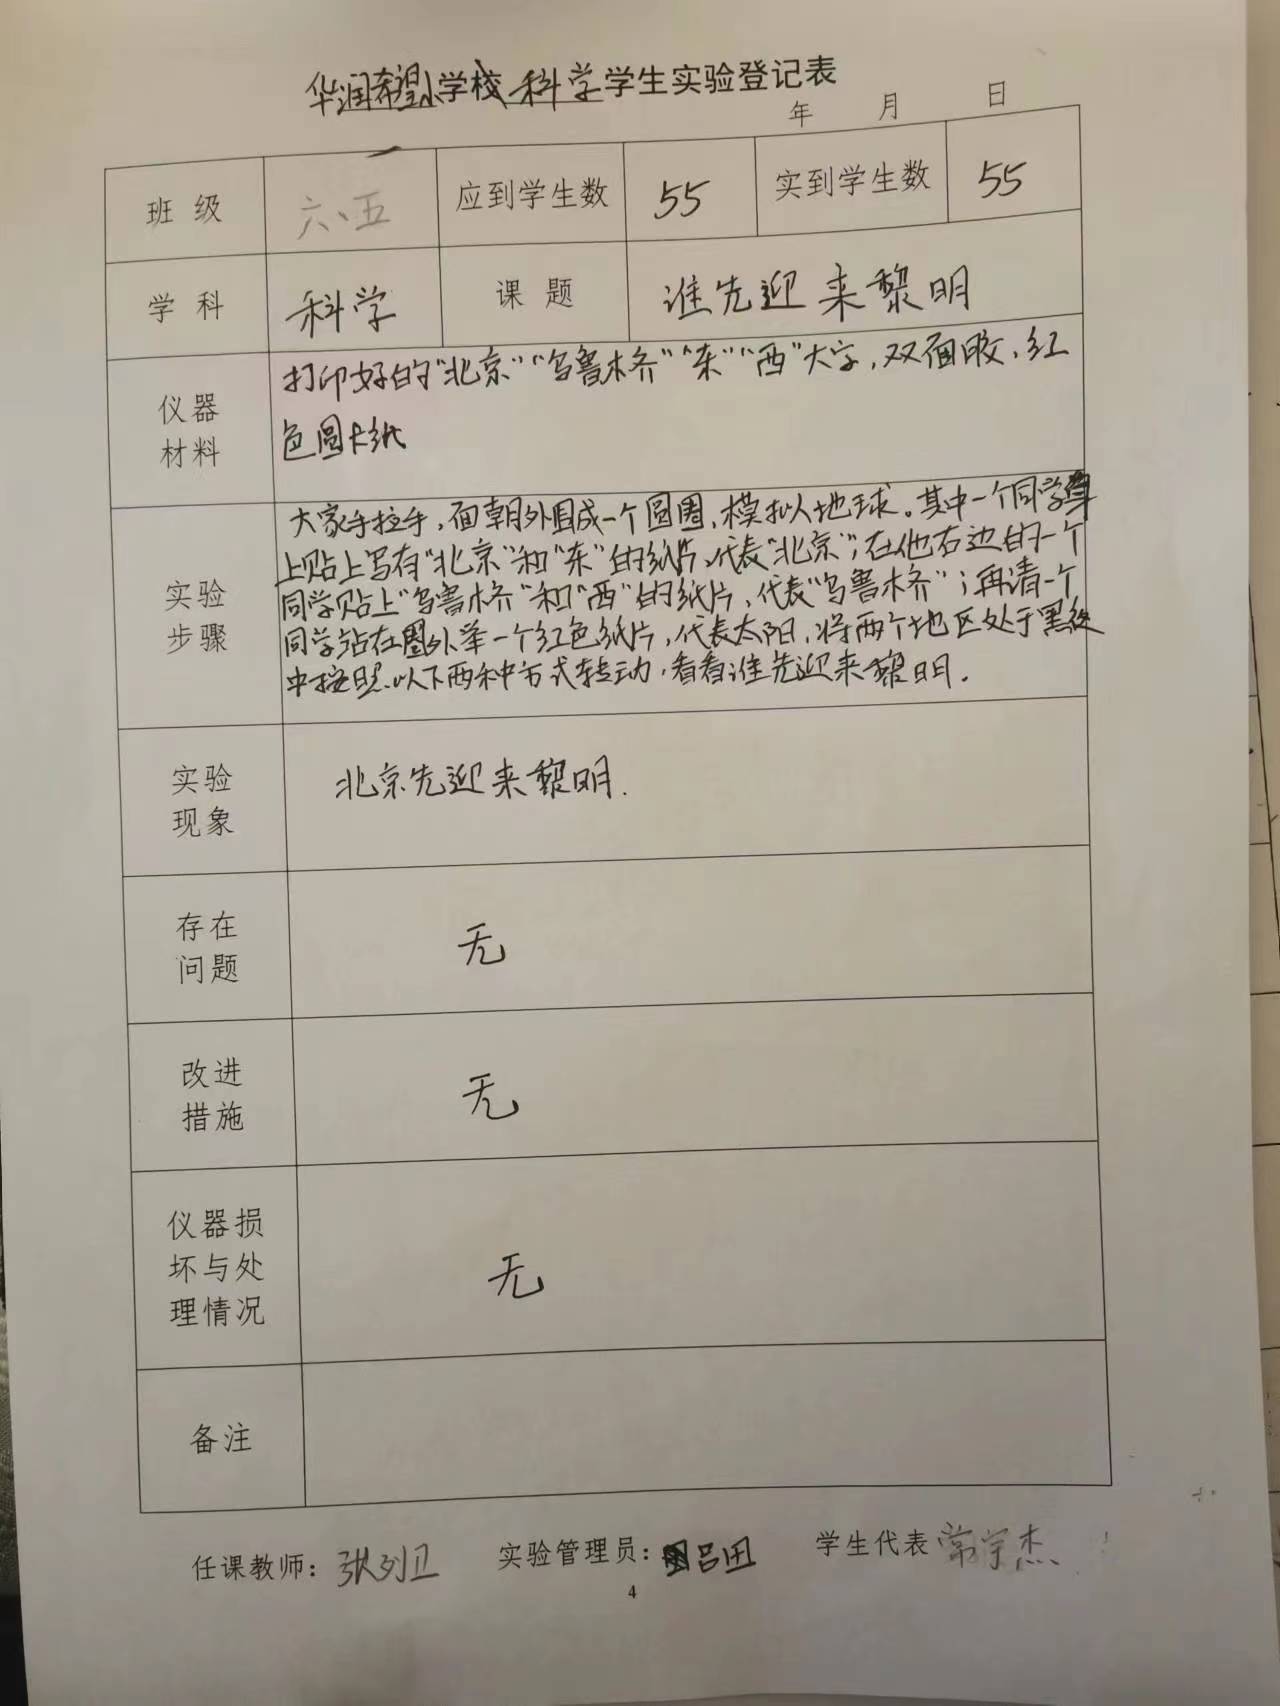 华润希望小学校科学学生实验登记表
年 月 日
班 级 六、五 应到学生数 55 实到学生数 55
学 科 科学 课 题 谁先迎来黎明
仪器
材料
打印好的“北京”“乌鲁木齐”“东”“西”大字,双面胶,红
色圆卡纸
实验
步骤
大家手拉手,面朝外围成一个圆圈,模拟地球。其中一个同学身
上贴上写有“北京”和“东”的纸片,代表“北京”;在他右边的一个
同学贴上“乌鲁木齐”和“西”的纸片,代表“乌鲁木齐”;再请一个
同学站在圈外举一个红色纸片,代表太阳,将两个地区处于黑夜
中按照以下两种方式转动,看看谁先迎来黎明.
实验
现象
北京先迎来黎明.
存在
问题
无
改进
措施
无
仪器损
坏与处
理情况
无
备注
任课教师: 张列卫 实验管理员: 吕田 学生代表 常宇杰
4